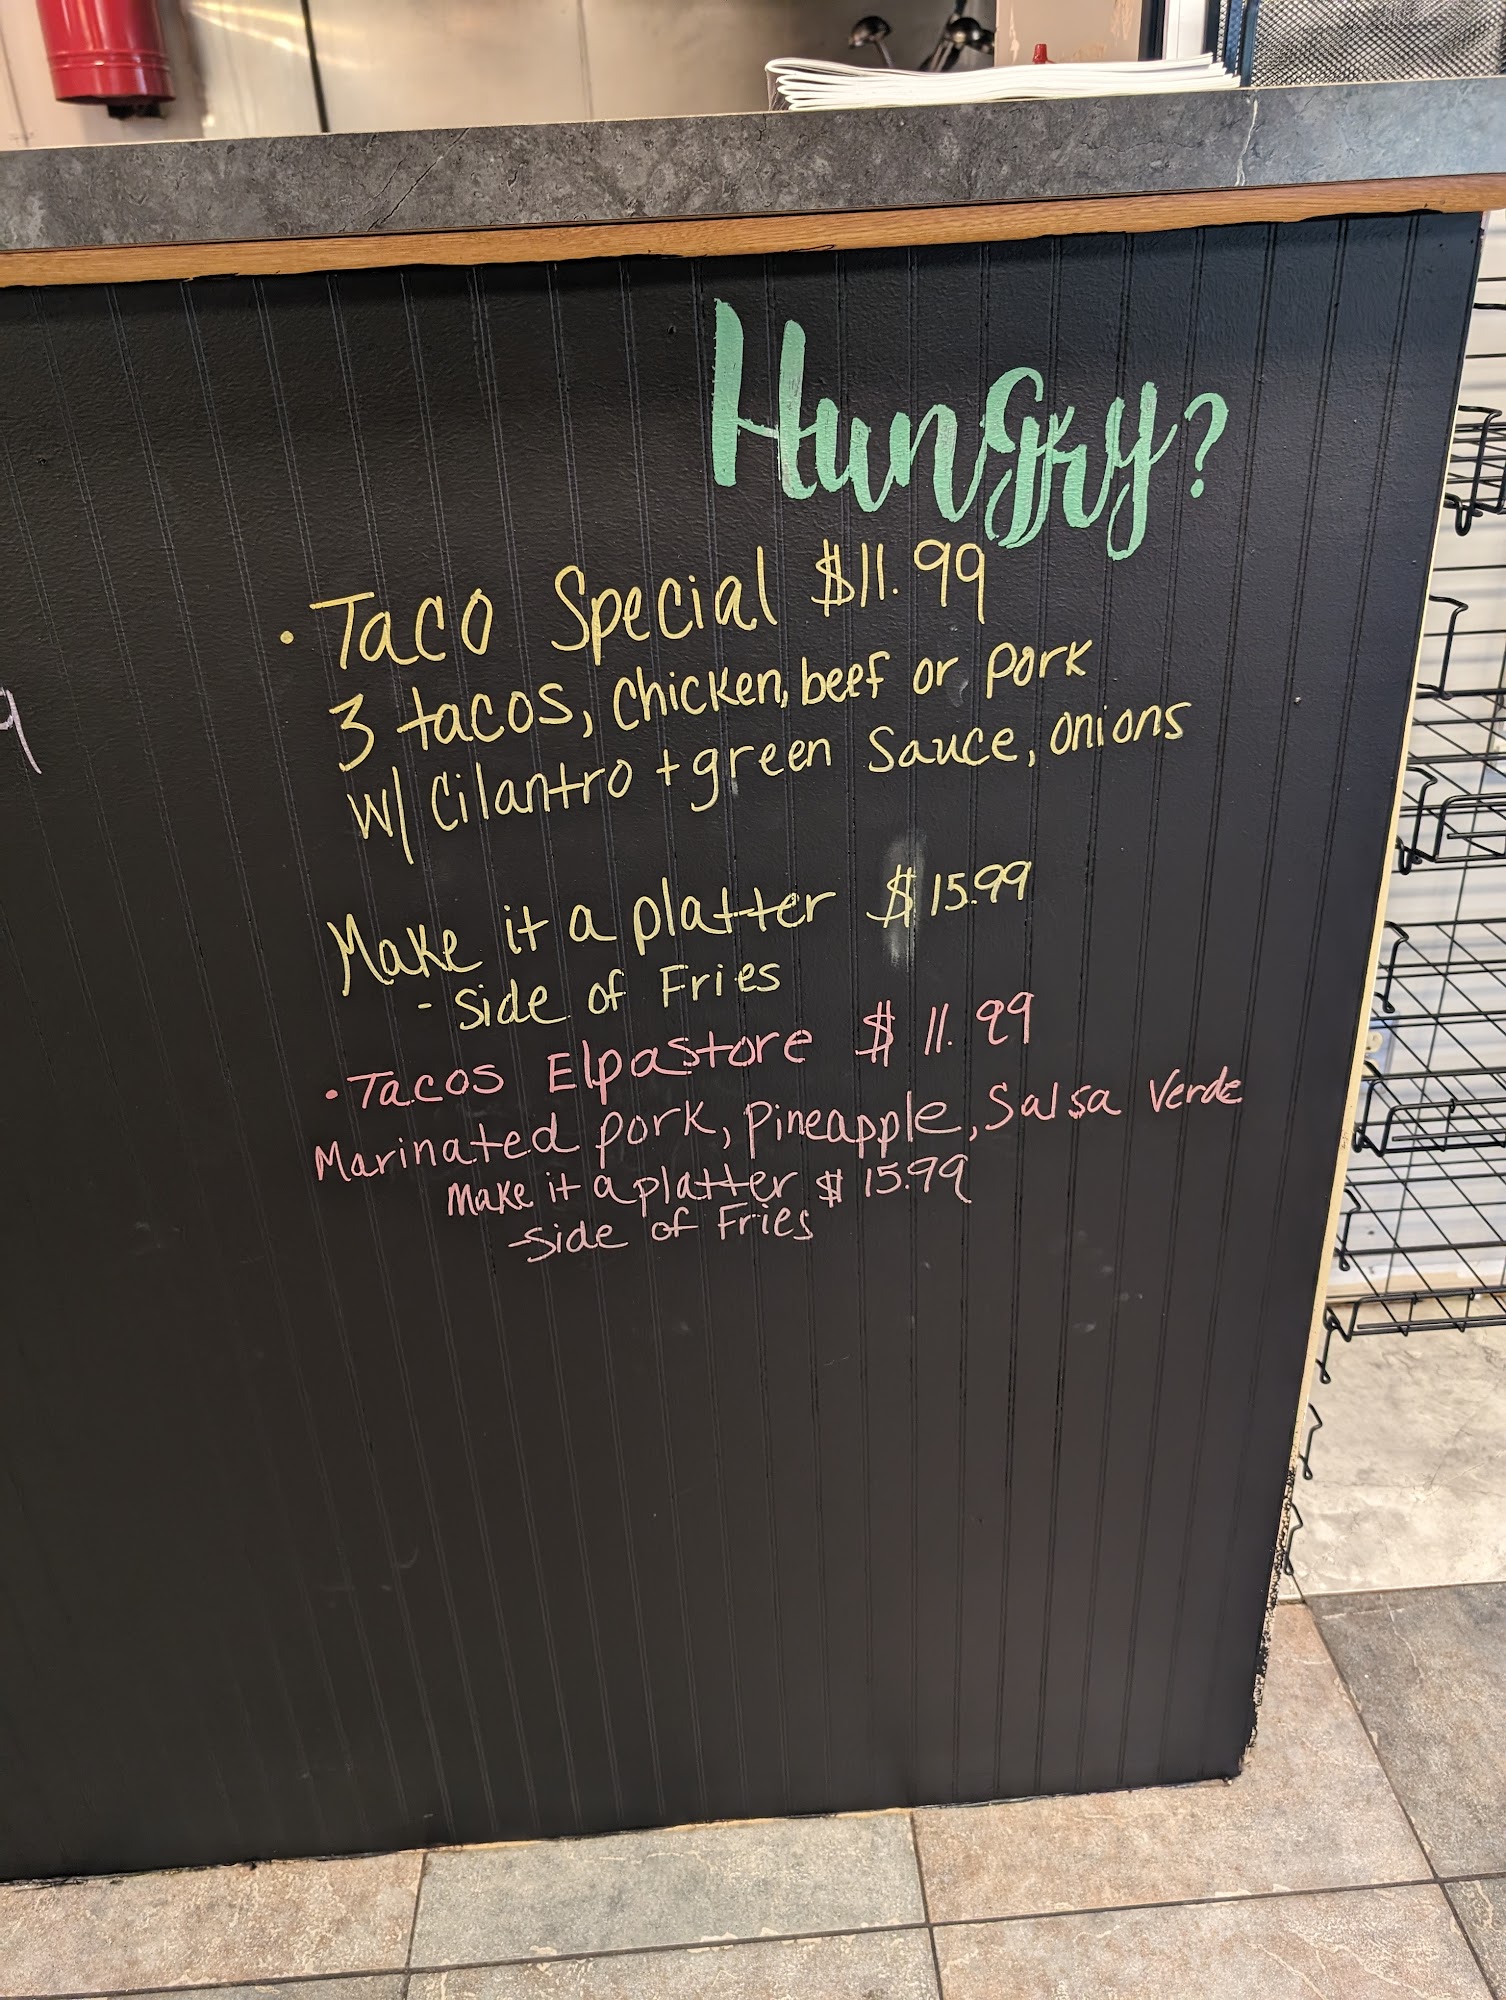 Hungry?
• Taco Special $11.99
3 tacos, chicken, beef or pork
w/ cilantro + green sauce, onions
Make it a platter $15.99
- side of Fries
• Tacos Elpastore $11.99
Marinated pork, pineapple, Salsa Verde
Make it a platter $15.99
- side of Fries